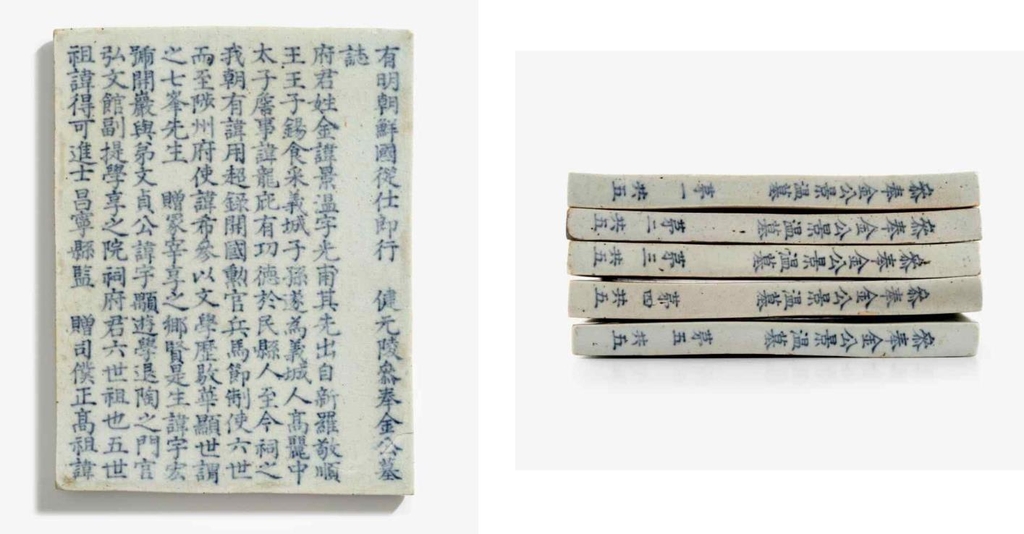 有明朝鮮國從仕郎行 健元陵叅奉金公墓
誌
府君姓金諱景溫字光甫其先出自新羅敬順
王王子錫食采義城子孫遂為義城人高麗中
太子詹事諱龍庇有功德於民縣人至今祠之
我朝有諱用超錄開國勳官兵馬節制使六世
而至陟州府使諱希參以文學歷敭華顯世謂
之七峯先生 贈冡宰享之鄉賢是生諱宇宏
號開巖與弟文貞公諱宇顒遊學退陶之門官
弘文館副提學享之院祠府君六世祖也五世
祖諱得可進士昌寧縣監 贈司僕正高祖諱
叅奉金公景溫墓 第一 共五
叅奉金公景溫墓 第二 共五
叅奉金公景溫墓 第三 共五
叅奉金公景溫墓 第四 共五
叅奉金公景溫墓 第五 共五